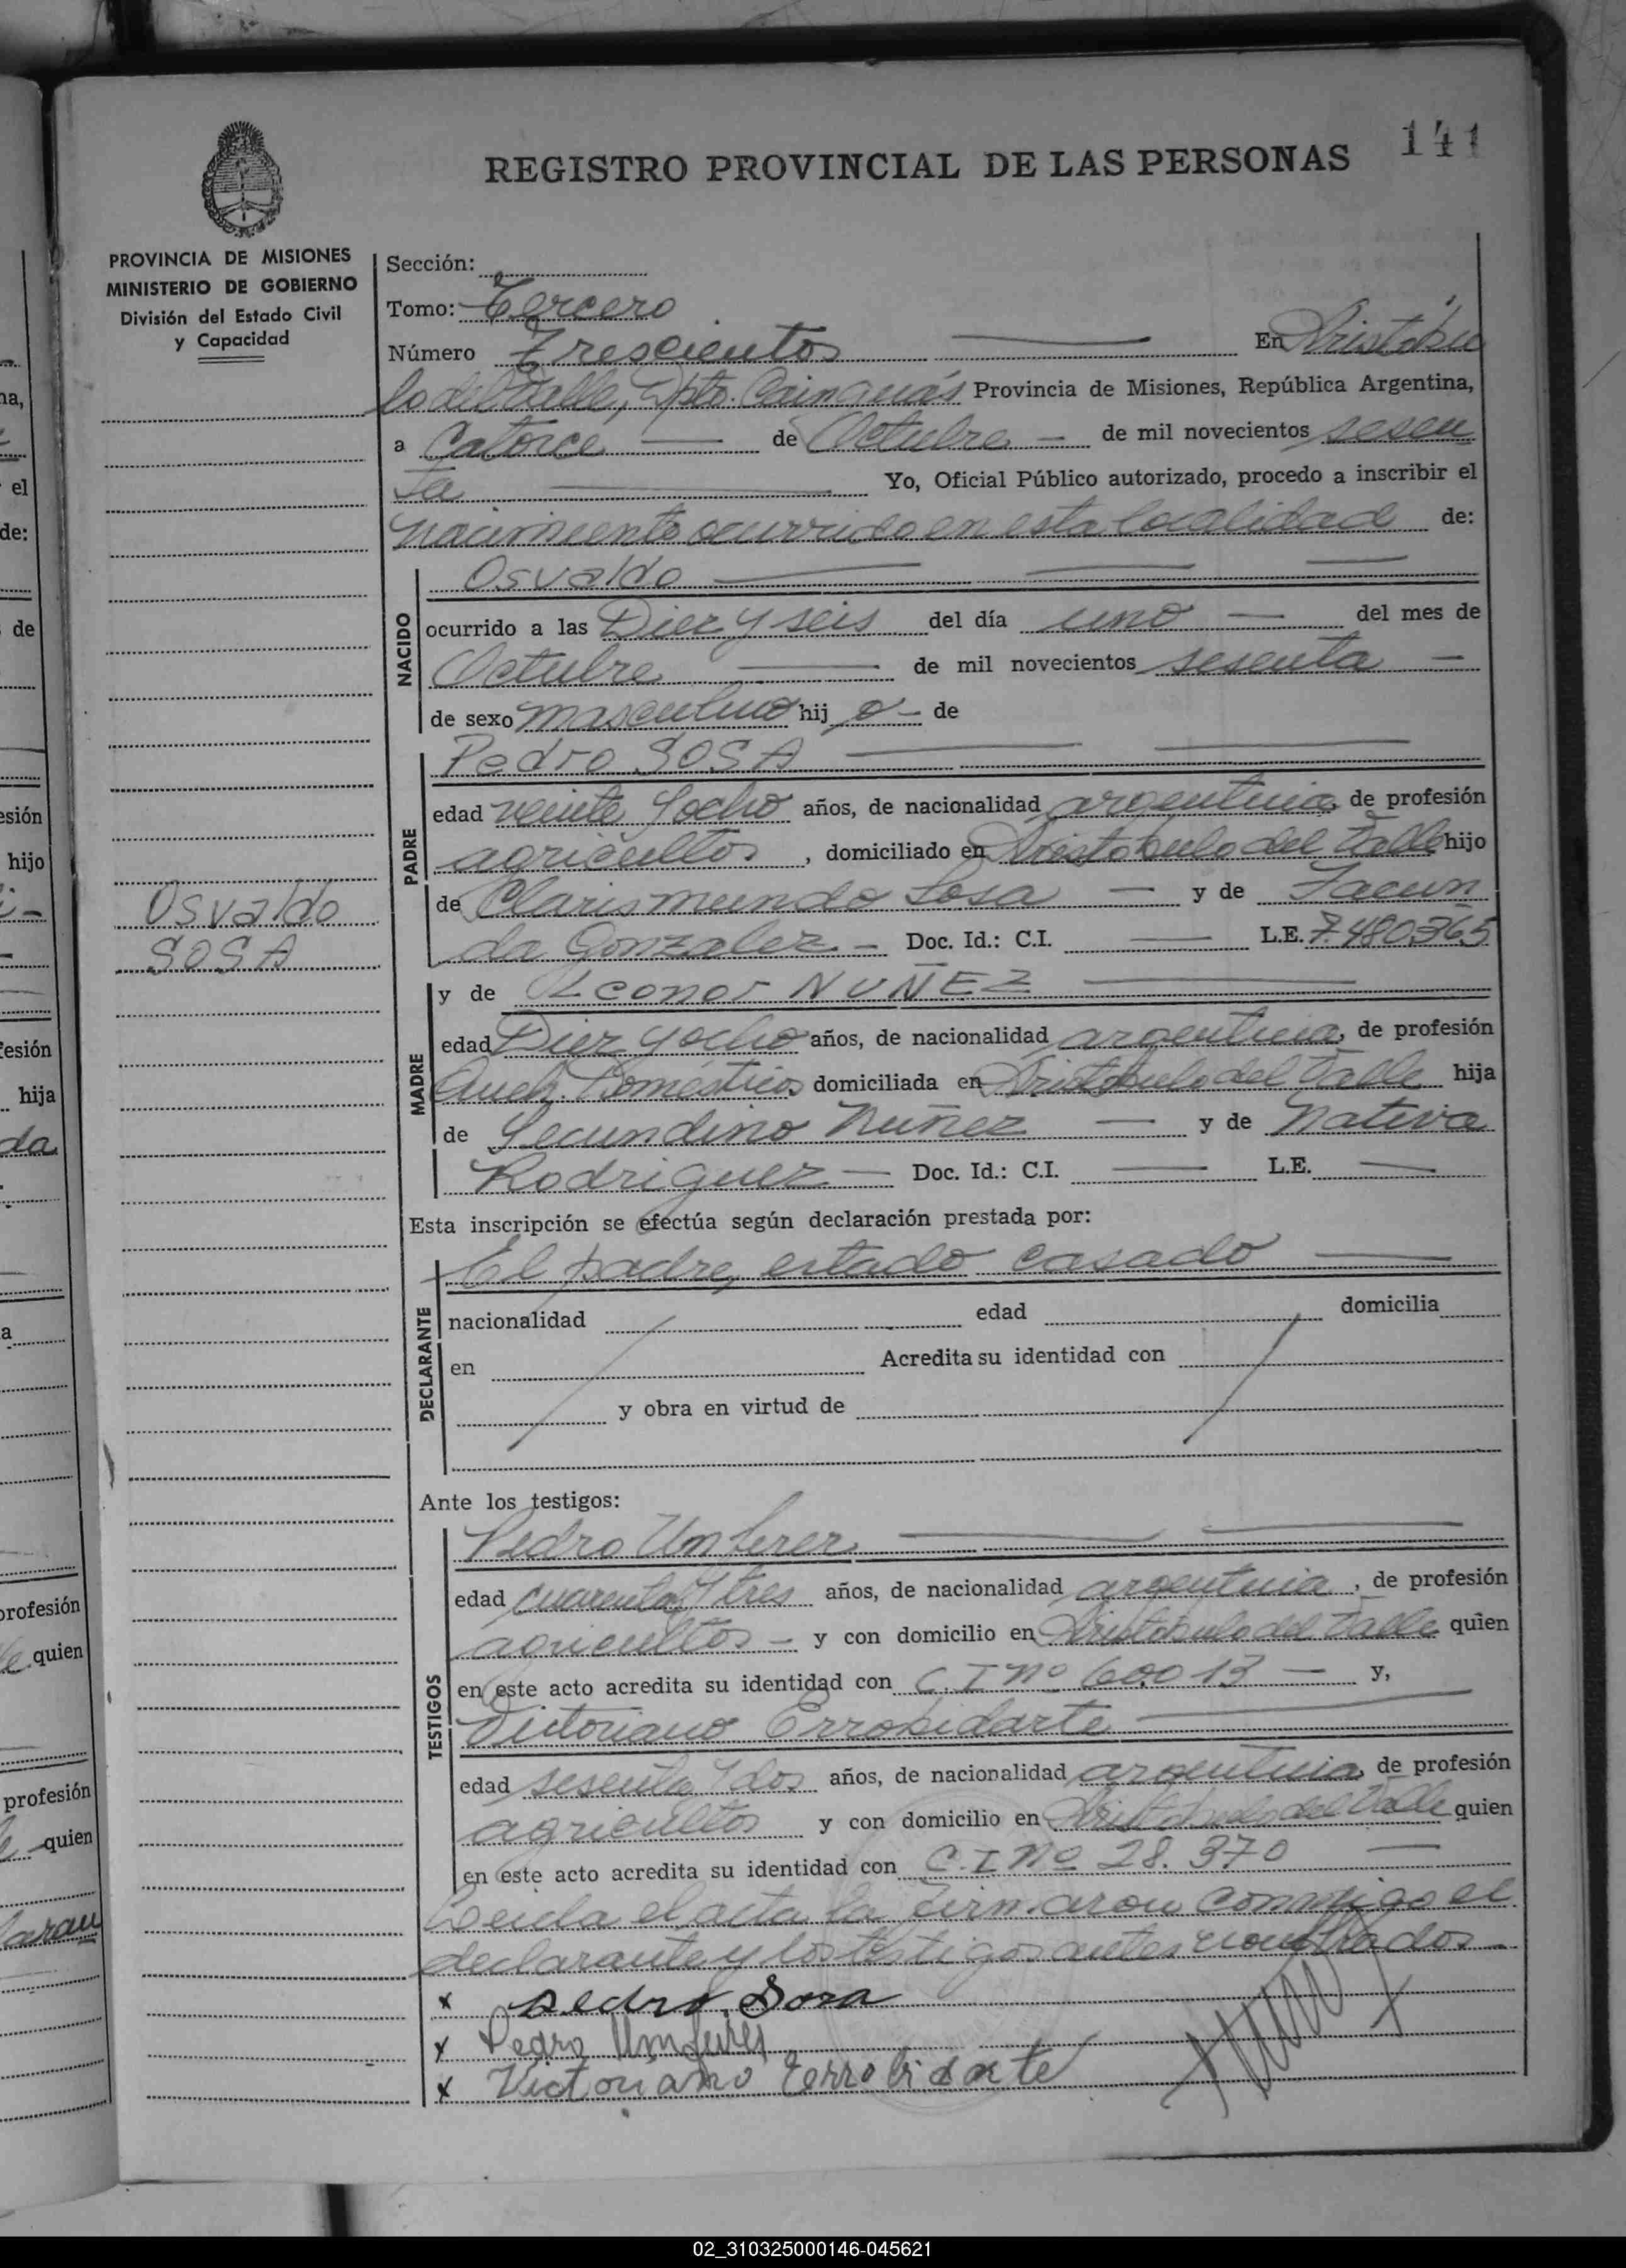 141
REGISTRO PROVINCIAL DE LAS PERSONAS
PROVINCIA DE MISIONES
MINISTERIO DE GOBIERNO
División del Estado Civil
y Capacidad
Sección:
Tomo: Tercero
Número Trescientos En Aristóbu
lo del Valle, Dpto. Cainguás Provincia de Misiones, República Argentina,
a Catorce de Octubre de mil novecientos sesen
ta Yo, Oficial Público autorizado, procedo a inscribir el
nacimiento ocurrido en esta localidad de:
Osvaldo
NACIDO
ocurrido a las Diez y seis del día uno del mes de
Octubre de mil novecientos sesenta
de sexo masculino hij o de
Pedro SOSA
PADRE
edad veinte y ocho años, de nacionalidad argentina, de profesión
agricultor, domiciliado en Aristóbulo del Valle hijo
de Clarismundo Sosa y de Facun
da Gonzalez.- Doc. Id.: C.I. L.E. 7.480.365
Osvaldo
SOSA
y de Leonor NUÑEZ
MADRE
edad Diez y ocho años, de nacionalidad argentina, de profesión
Queh. Domésticos domiciliada en Aristóbulo del Valle hija
de Secundino Nuñez y de Nativa
Rodriguez Doc. Id.: C.I. L.E.
Esta inscripción se efectúa según declaración prestada por:
El padre, estado casado
DECLARANTE
nacionalidad edad domicilia
en Acredita su identidad con
y obra en virtud de
Ante los testigos:
Pedro Umferer
TESTIGOS
edad cuarenta y tres años, de nacionalidad argentina, de profesión
agricultor y con domicilio en Aristóbulo del Valle quien
en este acto acredita su identidad con C.I Nº 60.013 y,
Victoriano Errobidarte
edad sesenta y dos años, de nacionalidad argentina, de profesión
agricultor y con domicilio en Aristóbulo del Valle quien
en este acto acredita su identidad con C.I Nº 28.370
Leida el acta la firmaron conmigo el
declarante y los testigos antes nombrados.
x Pedro Sosa
x Pedro Umferer
x Victoriano Errobidarte
02_310325000146-045621